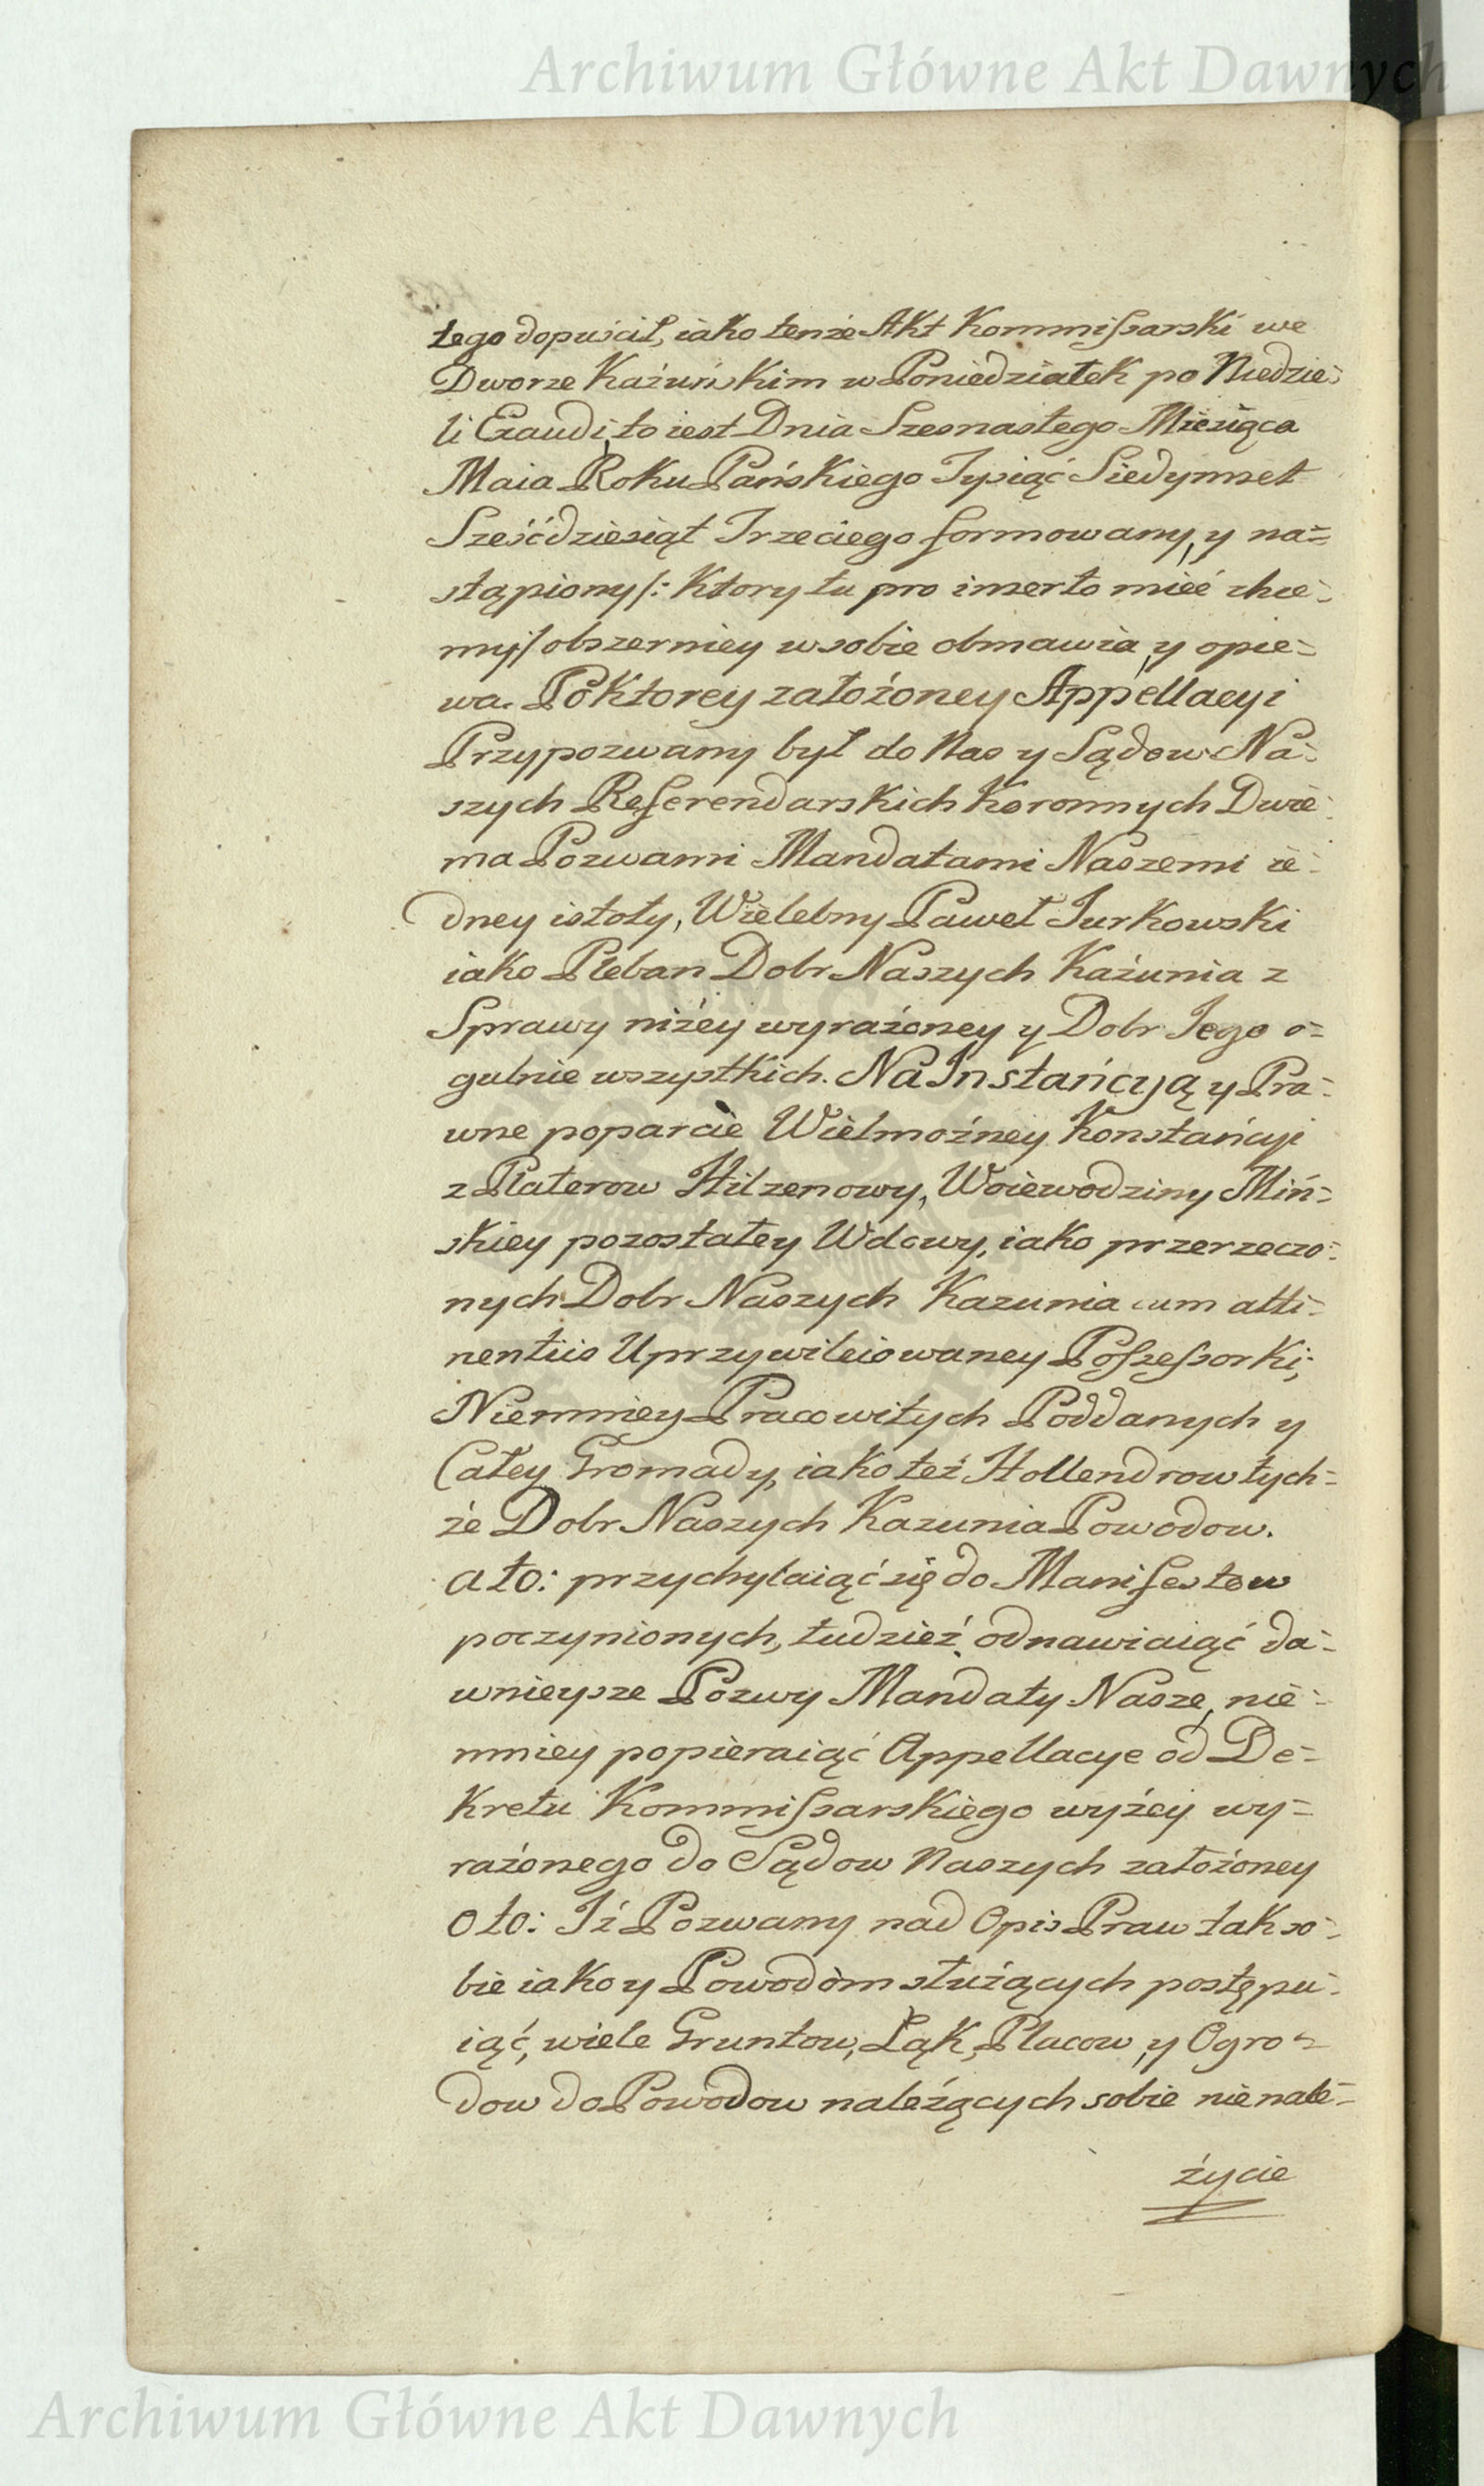 Archiwum Główne Akt Dawnych
tego dopuścił, iako tenże Akt Kommissarski we
Dworze Każuńskim w Poniedziałek po Niedzie-
li Exaudi, to iest Dnia Szesnastego Miesiąca
Maia Roku Pańskiego Tysiąć Siedymset
Sześćdziesiąt Trzeciego formowany, y na=
stąpiony /: Ktory tu pro inserto mieć chce-
my :/ obszerniey w sobie obmawia, y opie=
wa. Po Ktorey założoney Appellacyi
Przypozwany był do Nas y Sądow Na-
szych Referendarskich Koronnych Dwie-
ma Pozwami Mandatami Naszemi ie-
dney istoty, Wielebny Paweł Jurkowski
iako Pleban Dobr Naszych Każunia z
Sprawy niżey wyrażoney y Dobr Jego o=
gulnie wszystkich. Na Jnstańcyą y Pra-
wne poparcie Wielmożney Konstańcyi
z Platerow Hilzenowy, Woiewodziny Miń=
skiey pozostałey Wdowy, iako przerzeczo-
nych Dobr Naszych Kazunia cum atti-
nentiis Uprzywileiowaney Possessorki,
Niemniey Pracowitych Poddanych y
Całey Gromady, iako też Hollendrow tych=
że Dobr Naszych Kazunia Powodow.
a to: przychylaiąć się do Manifestow
poczynionych, tudzież odnawiaiąć da-
wnieysze Pozwy Mandaty Nasze, nie-
mniey popieraiąć Appellacye od De=
Kretu Kommissarskiego wyżey wy=
rażonego do Sądow Naszych założoney
o to: Jż Pozwany nad Opis Praw tak so-
bie iako y Powodóm służących postępu-
iąć, wiele Gruntow, Łąk, Placow, y Ogro=
dow do Powodow należących sobie nienale=
życie
Archiwum Główne Akt Dawnych